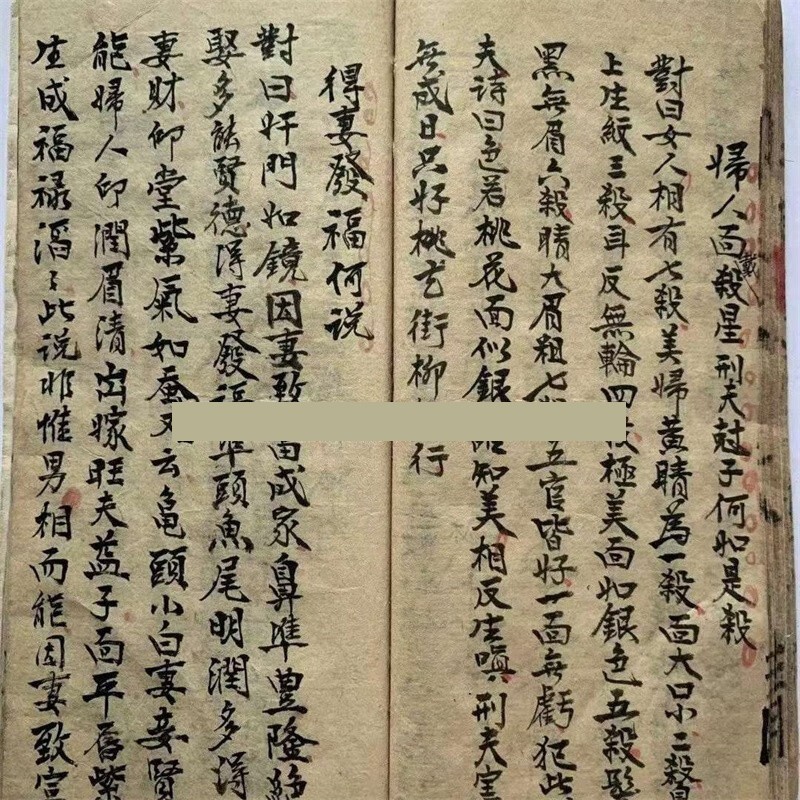 婦人面戴殺星刑夫尅子何如是殺
對曰女人相有七殺美婦黃睛為一殺面大口小二殺鼻
上生紙三殺耳反無輪四殺極美面如銀色五殺髮
黑無眉六殺睛大眉粗七五官皆好一面無虧犯此
夫詩曰色若桃花面似銀知美相反生嗔刑夫害
無成日只好桃玄街柳行
得妻發福何说
對曰奸門如鏡因妻致富成家鼻準豊隆
娶多能賢德得妻發福準頭魚尾明潤多得
妻財仰堂紫氣如蚕又云龟頭小白妻妾賢
能婦人卬潤眉清出嫁旺夫益子面平唇紫
生成福禄滔〻此说非惟男相而能因妻致富